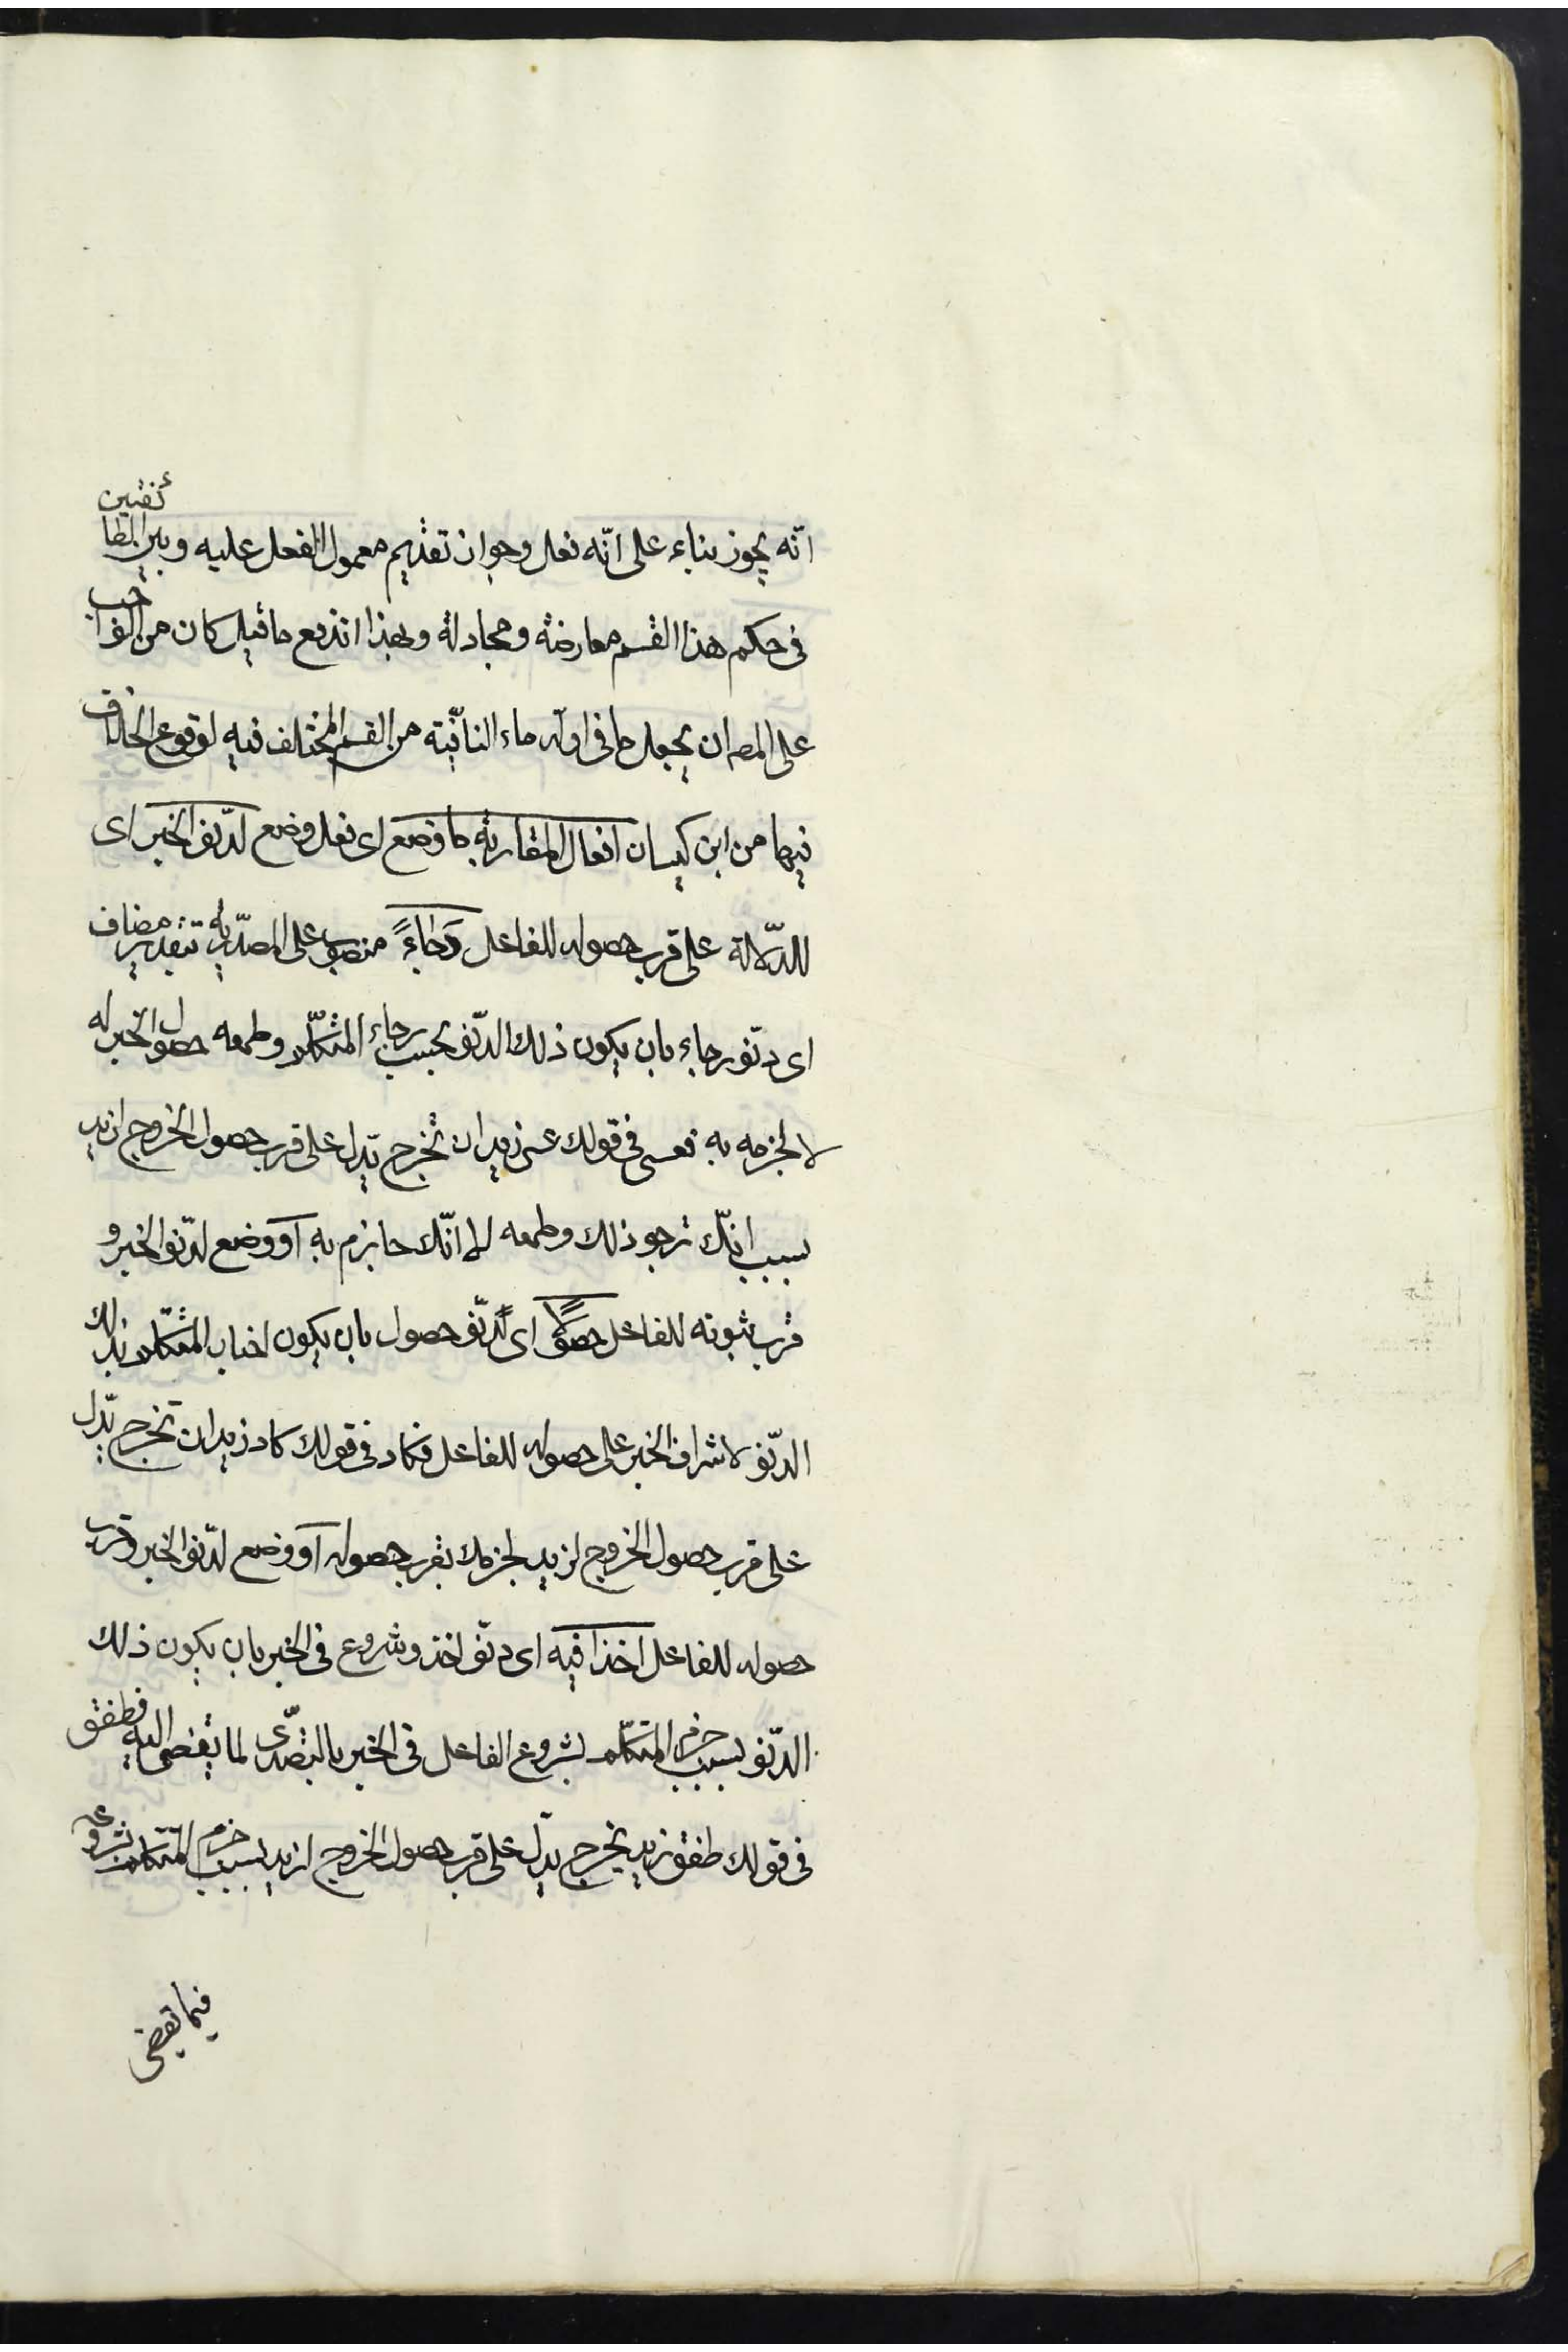 انّه يجوز بناء على انّه فعل وجواز تقديم معمول الفعل عليه وبين الطائفتين
فى حكم هذا القسم معارضة ومجادلة وبهذا اندفع ما قيل كان من الواجب
على المصـ ان يجعل ما فى اوله ماء النافية من القسم المختلف فيه لوقوع الخلاف
فيها من ابن كيسان افعال المقاربة ما وضع اى فعل وضع لدنوّ الخبر اى
للدّلالة على قرب حصوله للفاعل رجاءً منصوب على المصدرية بتقدير مضاف
اى دنوّ رجاء بان يكون ذلك الدنوّ بحسب رجاء المتكلّم وطمعه حصول الخبر له
لا لجزمه به فعسى فى قولك عسى زيد ان يخرج يدل على قرب حصول الخروج لزيد
بسبب انّك ترجو ذلك وطمعه لا انّك جازم به او وضع لدنوّ الخبر و
قرب ثبوته للفاعل حصولاً اى لدنوّ حصول بان يكون اخبار المتكلم بذلك
الدنوّ لاشراف الخبر على حصوله للفاعل فكاد فى قولك كاد زيد ان يخرج يدل
على قرب حصول الخروج لزيد لجزمك بقرب حصوله او وضع لدنوّ الخبر وقرب
حصوله للفاعل اخذا فيه اى دنوّ اخذ وشروع فى الخبر بان يكون ذلك
الدنوّ بسبب جزم المتكلّم بشروع الفاعل فى الخبر بالتصدّى لما يفضى اليه فطفق
فى قولك طفق زيد يخرج يدلّ على قرب حصول الخروج لزيد بسبب جزم المتكلم بشروعه
فيما يفضى